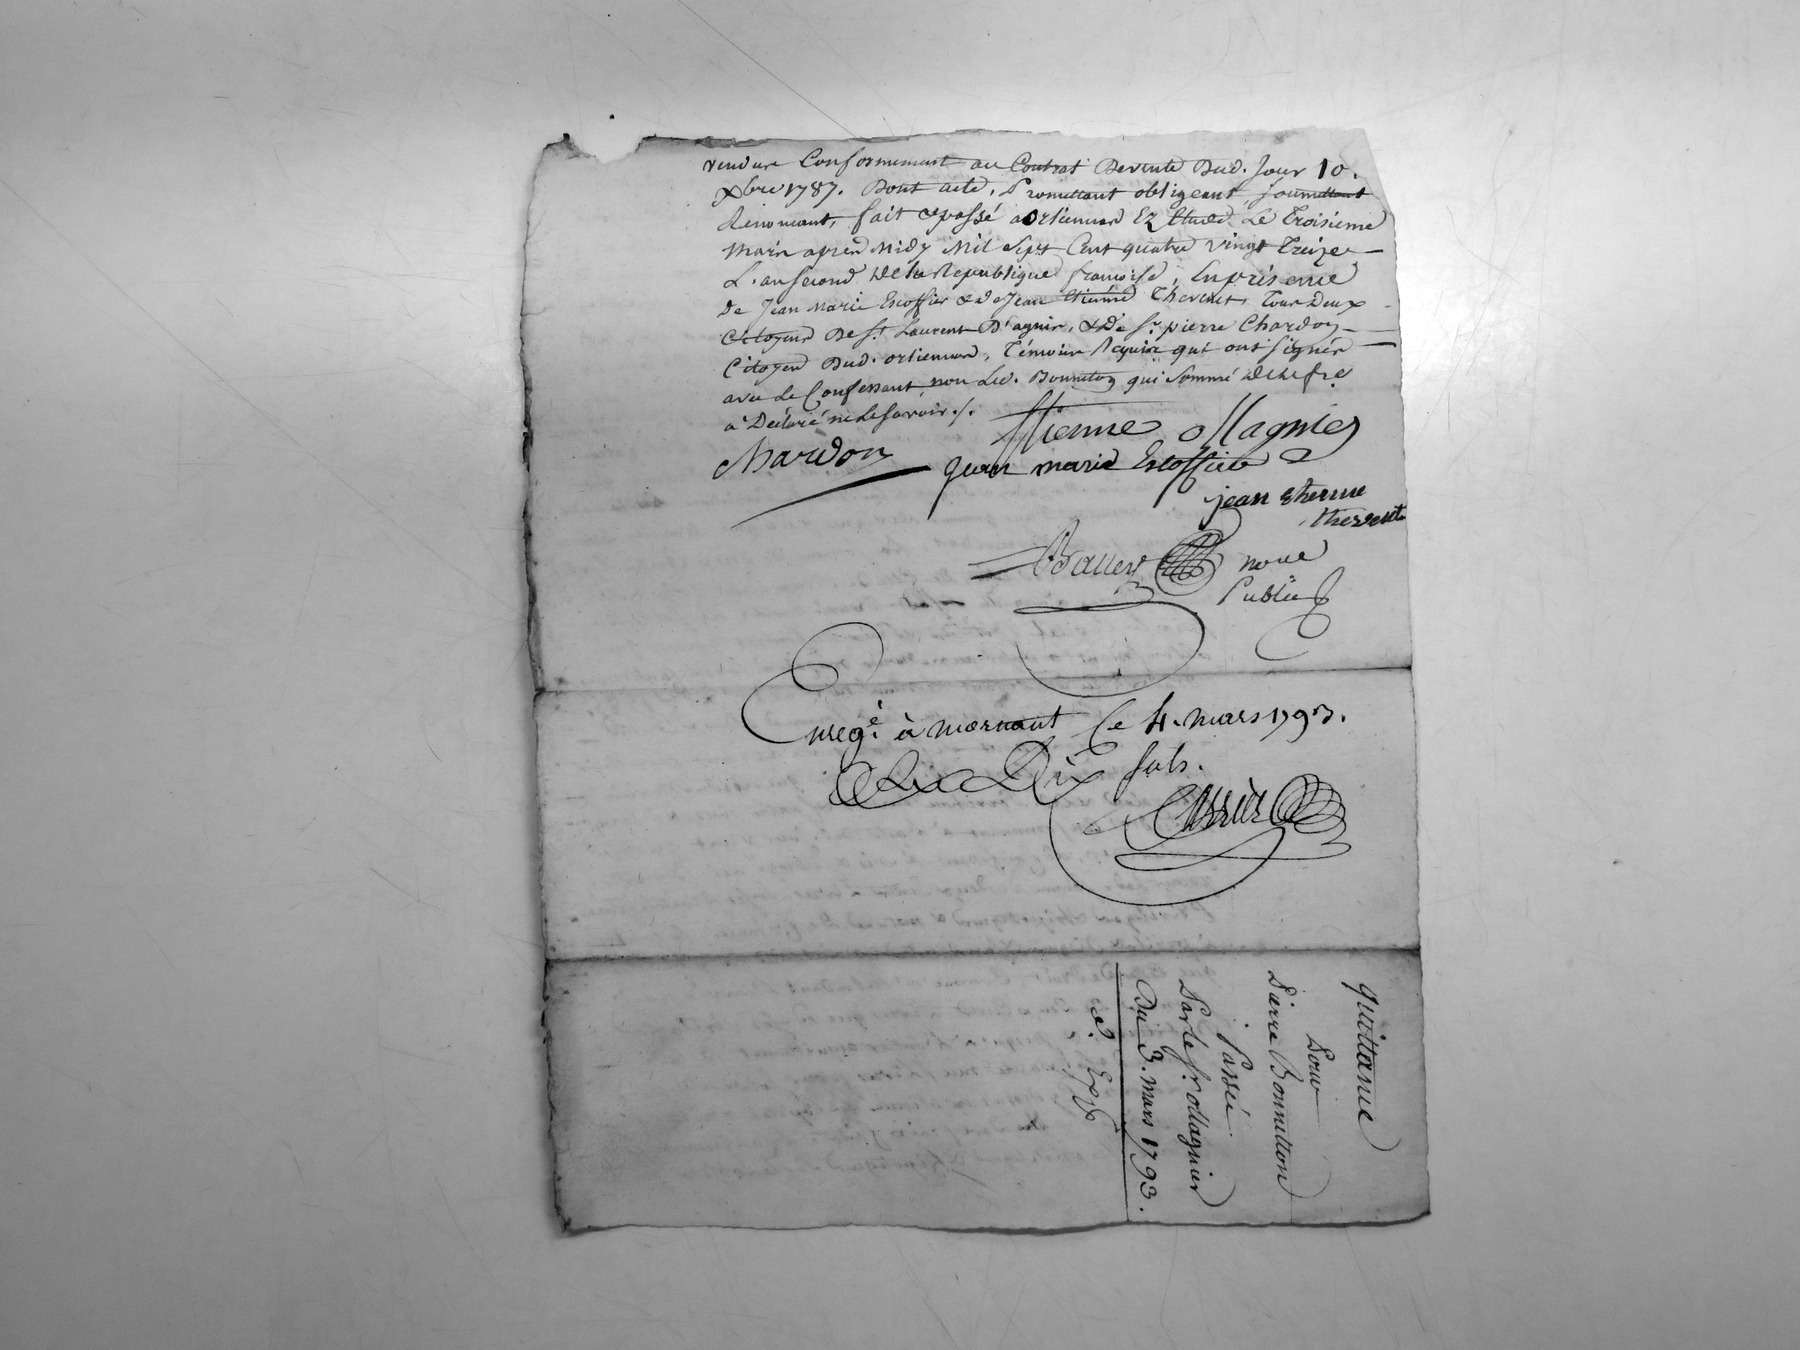 vendure Conformement au Contrat De vente Dud. Jour 10.
Xbre 1787. Dont acte, Promettant obligeant, soumettant
Renonceant, fait & passé a orlienas Ez Etude Le Troisieme
Mars apres Midy Mil Sept Cent quatre vingt Treize
L'an second De la Republique francoise, En présence
De Jean Marie Escoffier & de Jean Etienne Thevenet, Tous Deux
Citoyens De St. Laurent D'agnis, & De Sr. pierre Chardon
Citoyen Dud. orlienas, Témoins Requis qui ont signés
avec Le Confessant non Led. Bonneton qui sommé de ce fre
a Declaré ne Le savoir ./.
Etienne ollagnier
Chardon
jean marie Escoffier
jean etienne
thevenet
nore
Public
Enregé. à mornant Ce 4. mars 1793.
Dix sols.
quittance
Pour
Pierre Bonnetton
Passée
Par le Sr. ollagnier
Du 3. mars 1793.